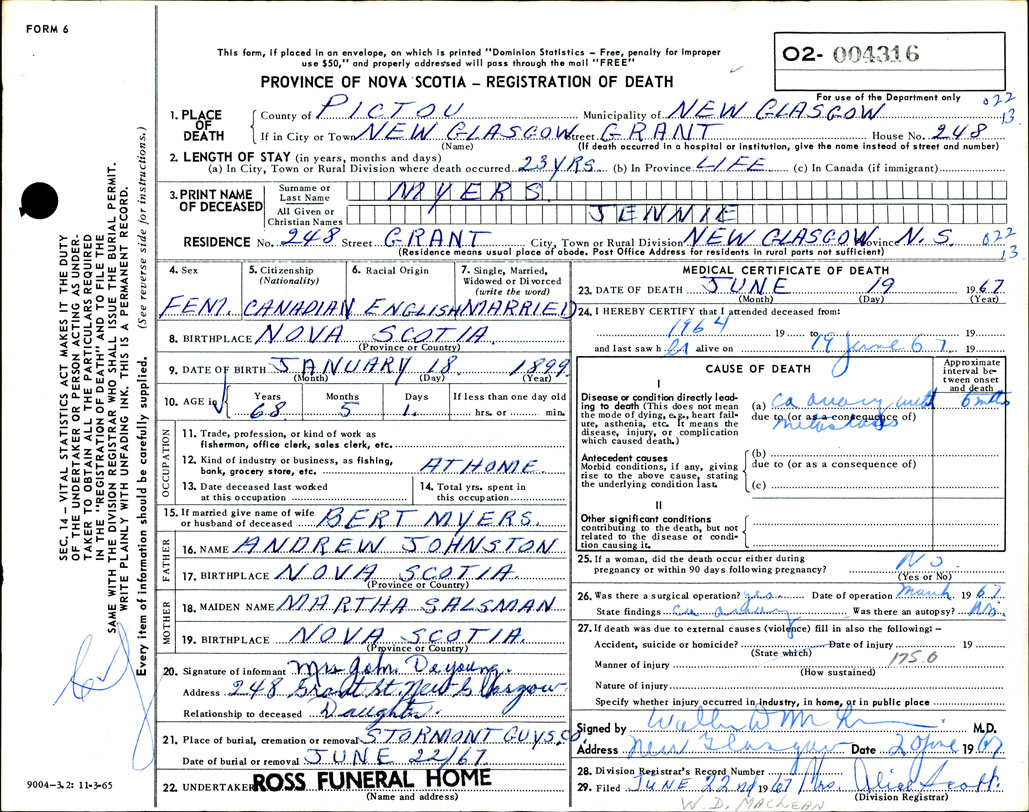 FORM 6
This form, if placed in an envelope, on which is printed "Dominion Statistics – Free, penalty for improper
use $50," and properly addressed will pass through the mail "FREE"
PROVINCE OF NOVA SCOTIA – REGISTRATION OF DEATH
O2- 004316
For use of the Department only
022
13
1. PLACE OF DEATH
County of PICTOU Municipality of NEW GLASGOW
If in City or Town NEW GLASGOW Street GRANT House No. 248
(Name) (If death occurred in a hospital or institution, give the name instead of street and number)
2. LENGTH OF STAY (in years, months and days)
(a) In City, Town or Rural Division where death occurred 23 YRS. (b) In Province LIFE (c) In Canada (if immigrant)
3. PRINT NAME OF DECEASED
Surname or Last Name MYERS
All Given or Christian Names JENNIE
RESIDENCE No. 248 Street GRANT City, Town or Rural Division NEW GLASGOW Province N.S. 022
(Residence means usual place of abode. Post Office Address for residents in rural parts not sufficient) 13.
4. Sex
FEM.
5. Citizenship (Nationality)
CANADIAN
6. Racial Origin
ENGLISH
7. Single, Married, Widowed or Divorced (write the word)
MARRIED
8. BIRTHPLACE NOVA SCOTIA
(Province or Country)
9. DATE OF BIRTH JANUARY 18 1899
(Month) (Day) (Year)
10. AGE in Years Months Days If less than one day old
68 5 1. hrs. or min.
OCCUPATION
11. Trade, profession, or kind of work as
fisherman, office clerk, sales clerk, etc.
12. Kind of industry or business, as fishing,
bank, grocery store, etc. AT HOME
13. Date deceased last worked
at this occupation
14. Total yrs. spent in
this occupation
15. If married give name of wife
or husband of deceased BERT MYERS.
FATHER
16. NAME ANDREW JOHNSTON
17. BIRTHPLACE NOVA SCOTIA.
(Province or Country)
MOTHER
18. MAIDEN NAME MARTHA SALSMAN
19. BIRTHPLACE NOVA SCOTIA.
(Province or Country)
20. Signature of informant Mrs John Deyoung.
Address 248 Grant St. New Glasgow
Relationship to deceased Daughter.
21. Place of burial, cremation or removal STORMONT GUYS. CO.
Date of burial or removal JUNE 22/67
22. UNDERTAKER ROSS FUNERAL HOME
(Name and address)
MEDICAL CERTIFICATE OF DEATH
23. DATE OF DEATH JUNE 19 1967
(Month) (Day) (Year)
24. I HEREBY CERTIFY that I attended deceased from:
1964 19 to 19
and last saw h er alive on 19 June 67 19
CAUSE OF DEATH
Approximate interval between onset and death
I
Disease or condition directly lead-
ing to death (This does not mean
the mode of dying, e.g., heart fail-
ure, asthenia, etc. It means the
disease, injury, or complication
which caused death.)
(a) ca ovary with 6 mths
due to (or as a consequence of)
metastasis
Antecedent causes
Morbid conditions, if any, giving
rise to the above cause, stating
the underlying condition last.
(b)
due to (or as a consequence of)
(c)
II
Other significant conditions
contributing to the death, but not
related to the disease or condi-
tion causing it.
25. If a woman, did the death occur either during
pregnancy or within 90 days following pregnancy? No
(Yes or No)
26. Was there a surgical operation? yes Date of operation March 1967
State findings ca ovary Was there an autopsy? No.
27. If death was due to external causes (violence) fill in also the following: –
Accident, suicide or homicide? Date of injury 19
(State which)
175.0
Manner of injury
(How sustained)
Nature of injury
Specify whether injury occurred in industry, in home, or in public place
Signed by M.D.
Address New Glasgow Date 20 June 1967
28. Division Registrar's Record Number
29. Filed JUNE 22nd 1967 Mrs. Alice Scott.
(Division Registrar)
W. D. MACLEAN
SEC. 14 – VITAL STATISTICS ACT MAKES IT THE DUTY
OF THE UNDERTAKER OR PERSON ACTING AS UNDER-
TAKER TO OBTAIN ALL THE PARTICULARS REQUIRED
IN THE "REGISTRATION OF DEATH" AND TO FILE THE
SAME WITH THE DIVISION REGISTRAR WHO SHALL ISSUE THE BURIAL PERMIT.
WRITE PLAINLY WITH UNFADING INK. THIS IS A PERMANENT RECORD.
Every item of information should be carefully supplied. (See reverse side for instructions.)
9004-3.2: 11-3-65